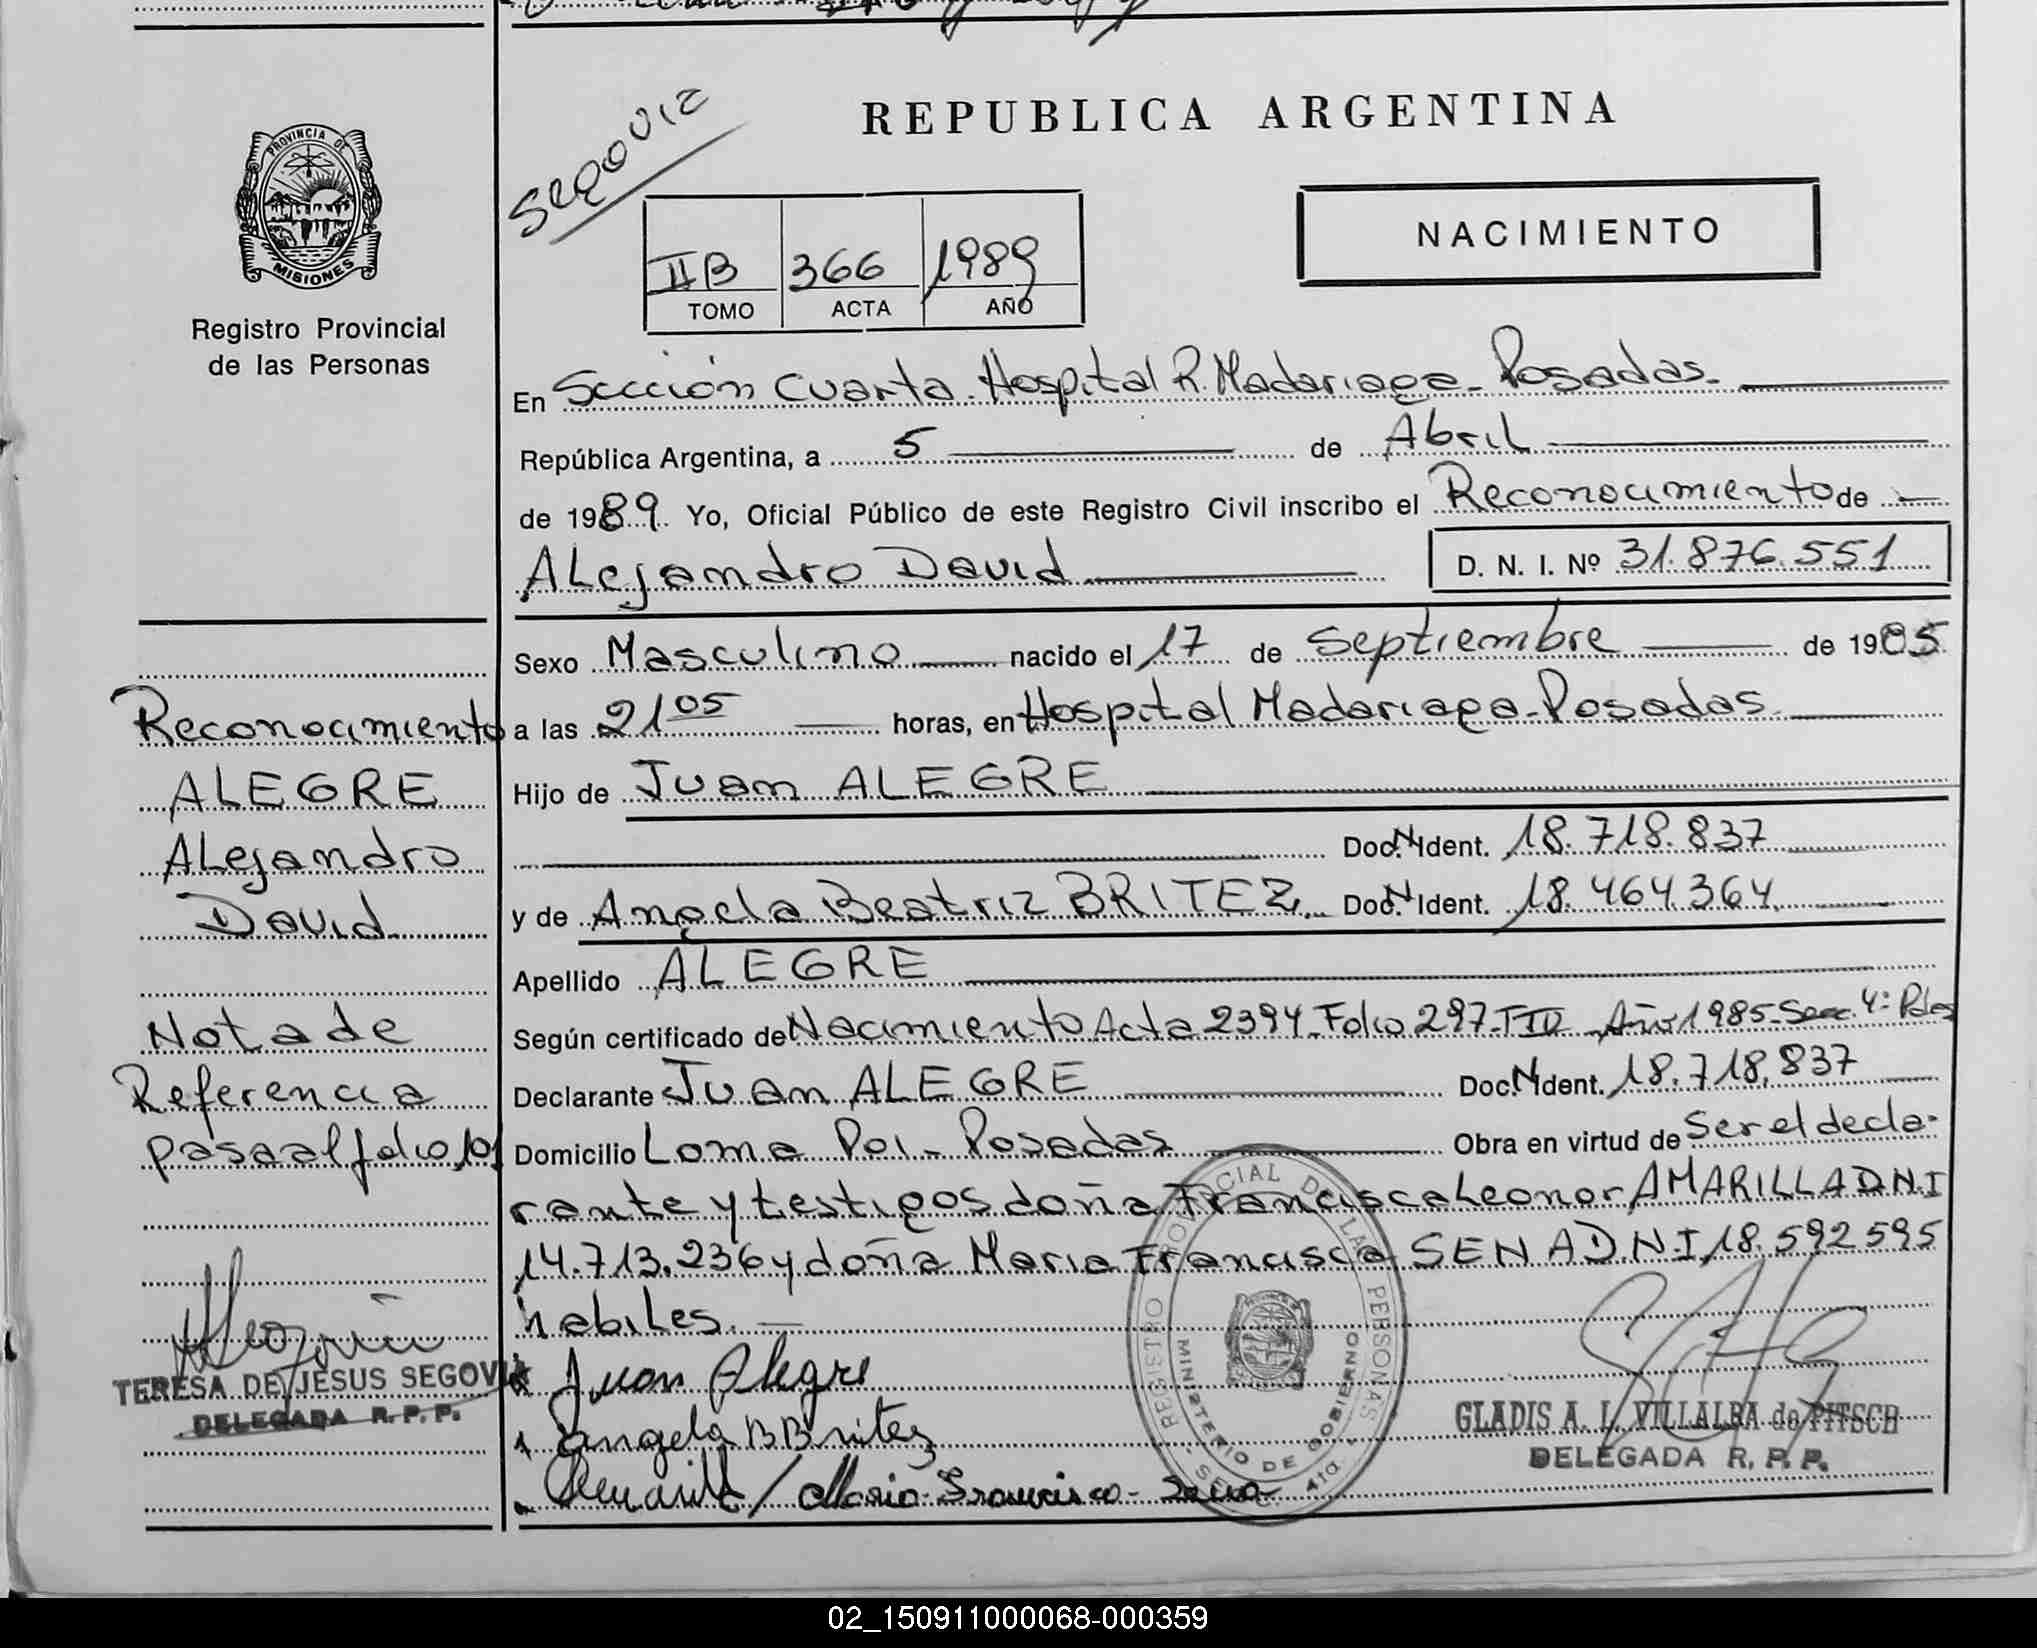 PROVINCIA DE
MISIONES
Registro Provincial
de las Personas
Segovia
REPUBLICA ARGENTINA
NACIMIENTO
IIB 366 1989
TOMO ACTA AÑO
En Sección Cuarta. Hospital R. Madariaga - Posadas.
República Argentina, a 5 de Abril
de 1989. Yo, Oficial Público de este Registro Civil inscribo el Reconocimiento de
Alejandro David
D. N. I. Nº 31.876.551
Sexo Masculino nacido el 17 de Septiembre de 1985
a las 21 05 horas, en Hospital Madariaga - Posadas
Hijo de Juan ALEGRE
Doc. N Ident. 18.718.837
y de Angela Beatriz BRITEZ Doc. N Ident. 18.464.364
Apellido ALEGRE
Según certificado de Nacimiento Acta 2394 Folio 297 - Año 1985 - Secc. 4ª
Declarante Juan ALEGRE Doc. N Ident. 18.718.837
Domicilio Loma Poi - Posadas Obra en virtud de Ser el decla-
rante y testigos doña Francisca Leonor AMARILLA D.N.I
14.713.236 y doña Maria Francisca SENA D.N.I. 18.592595
habiles.
Juan Alegre
Angela B Britez
Maria Francisca Sena
Reconocimiento
ALEGRE
Alejandro
David
Nota de
Referencia
pasa al folio 101
TERESA DE JESUS SEGOVIA
DELEGADA R. P. P.
REGISTRO PROVINCIAL DE LAS PERSONAS
MINISTERIO DE GOBIERNO
SECC. 4ta.
GLADIS A. L. VILLALBA de PITSCH
DELEGADA R. P. P.
02_150911000068-000359